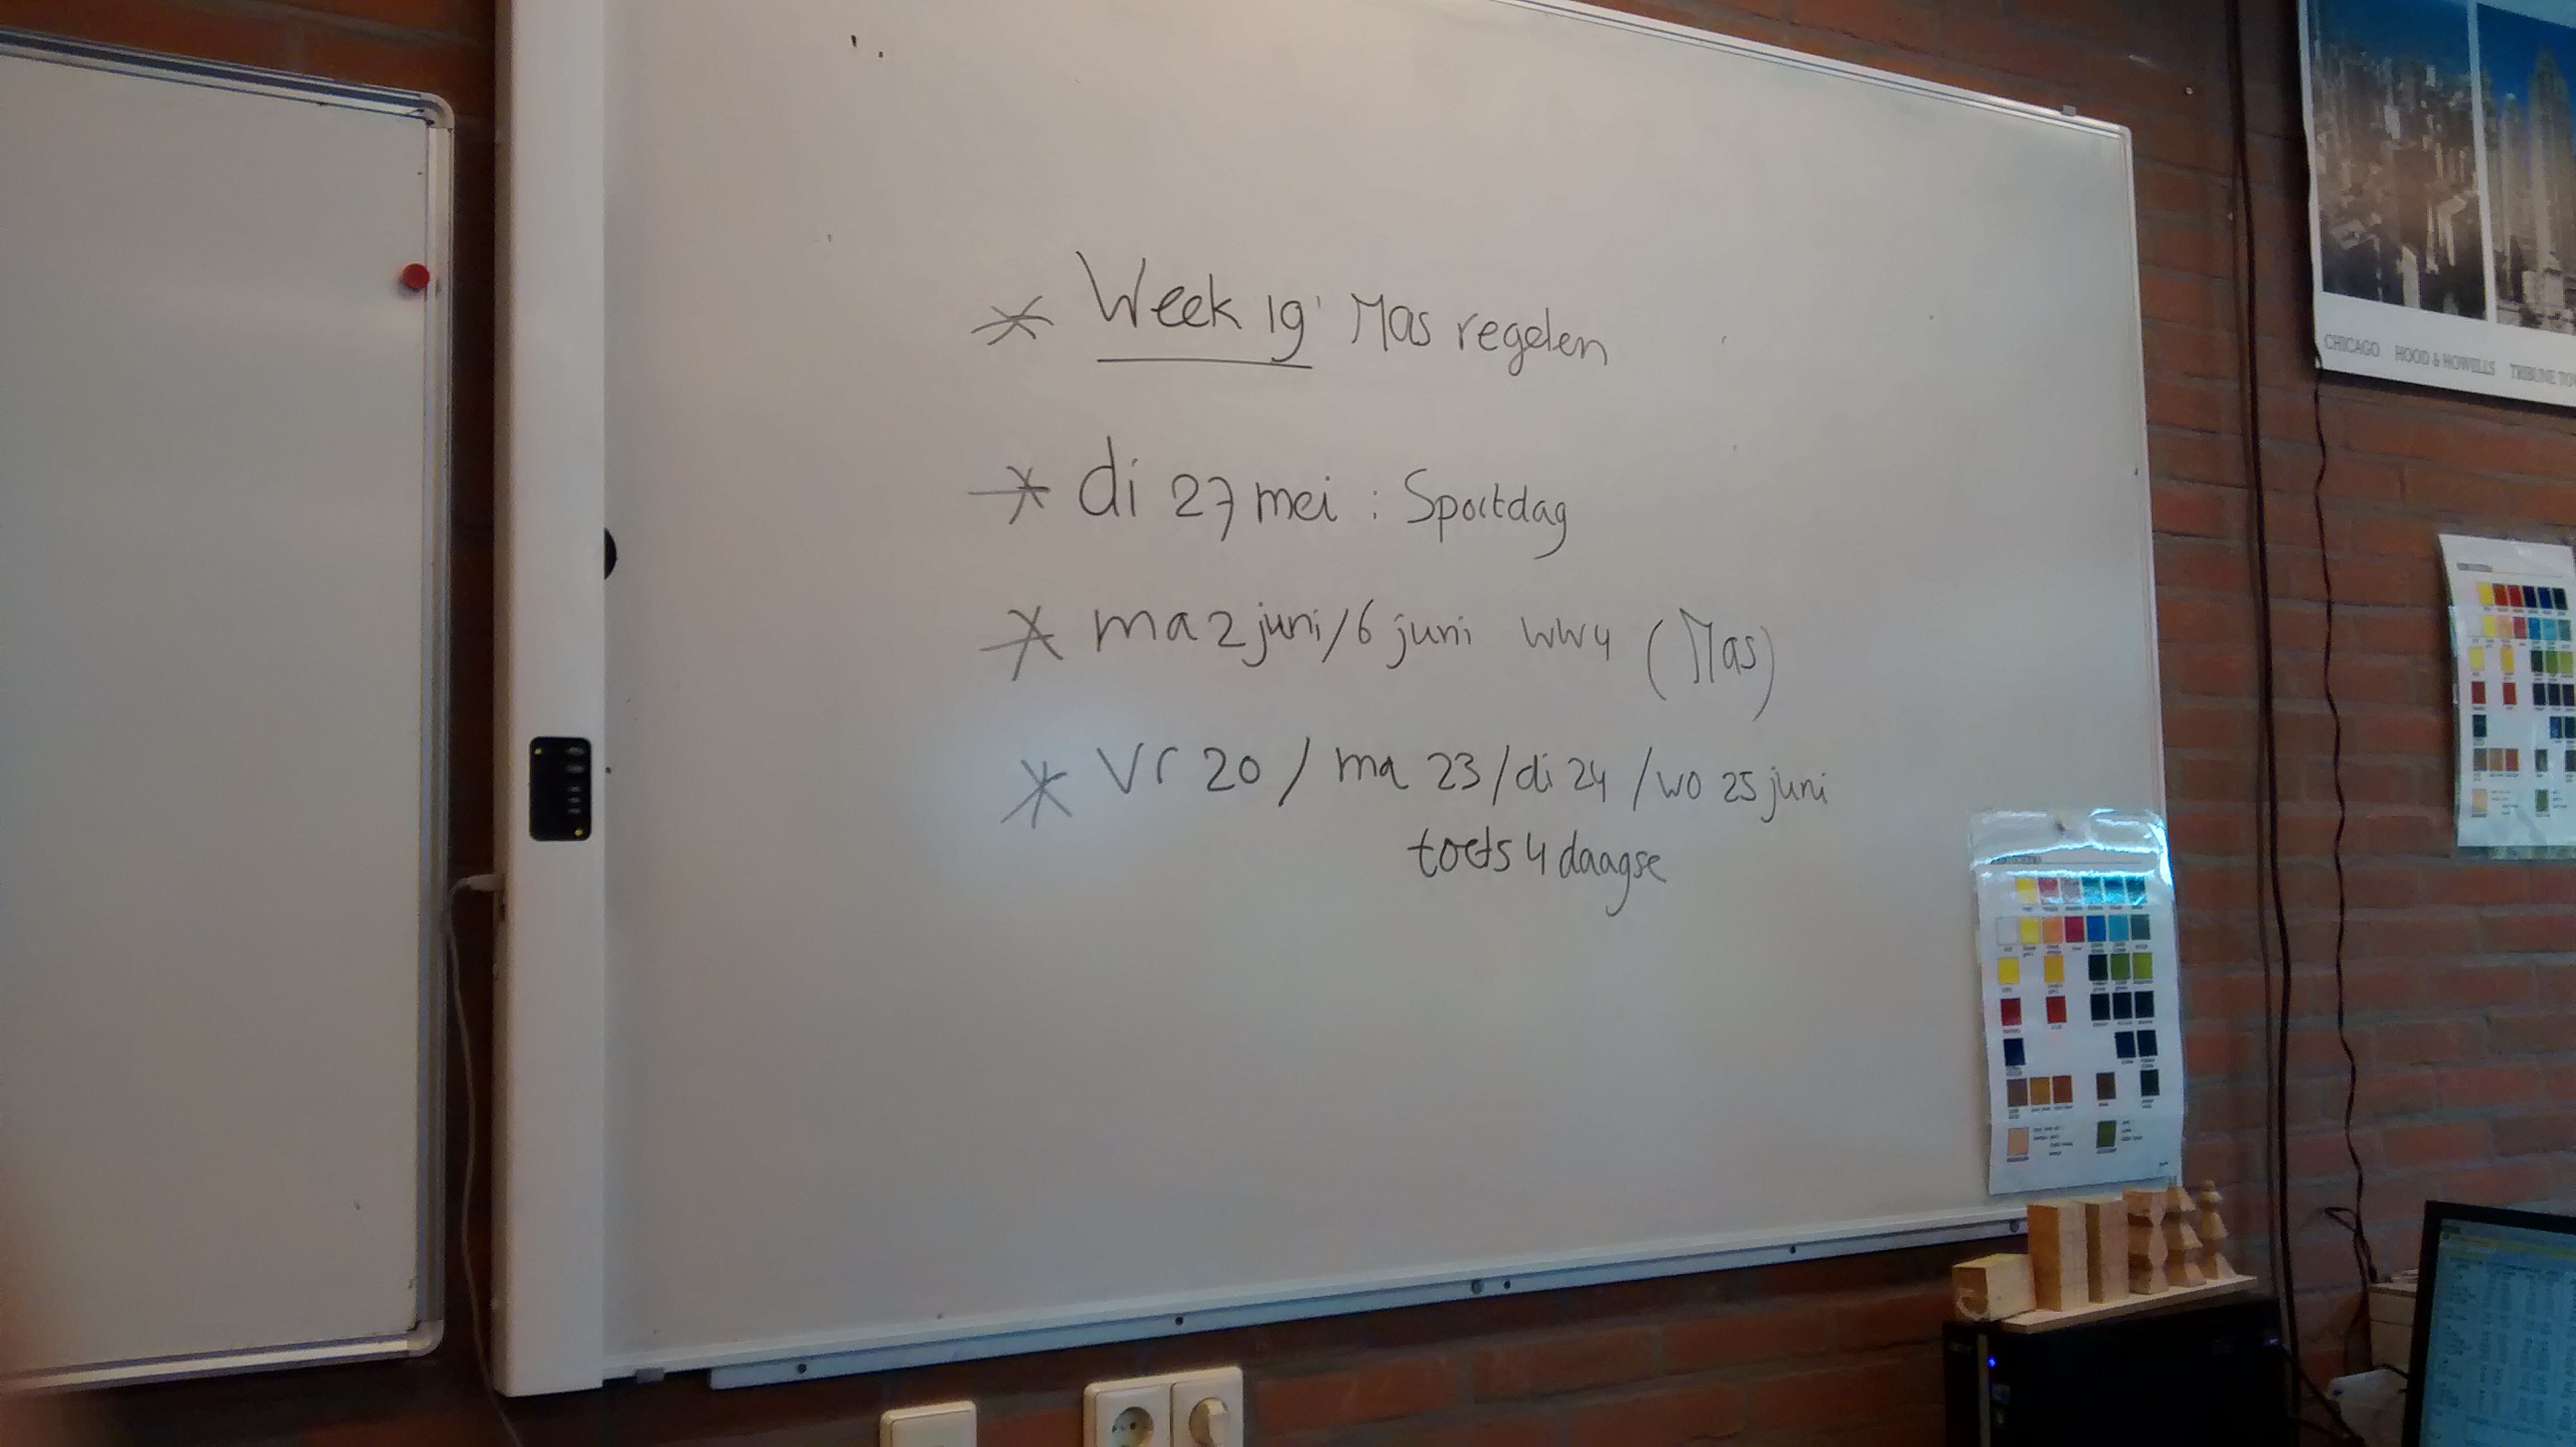 * Week 19 Mas regelen
* di 27 mei : Sportdag
* ma 2 juni/6 juni WW4 (Mas)
* Vr 20 / ma 23 / di 24 / wo 25 juni
toets 4 daagse
CHICAGO HOOD & HOWELLS TRIBUNE TO